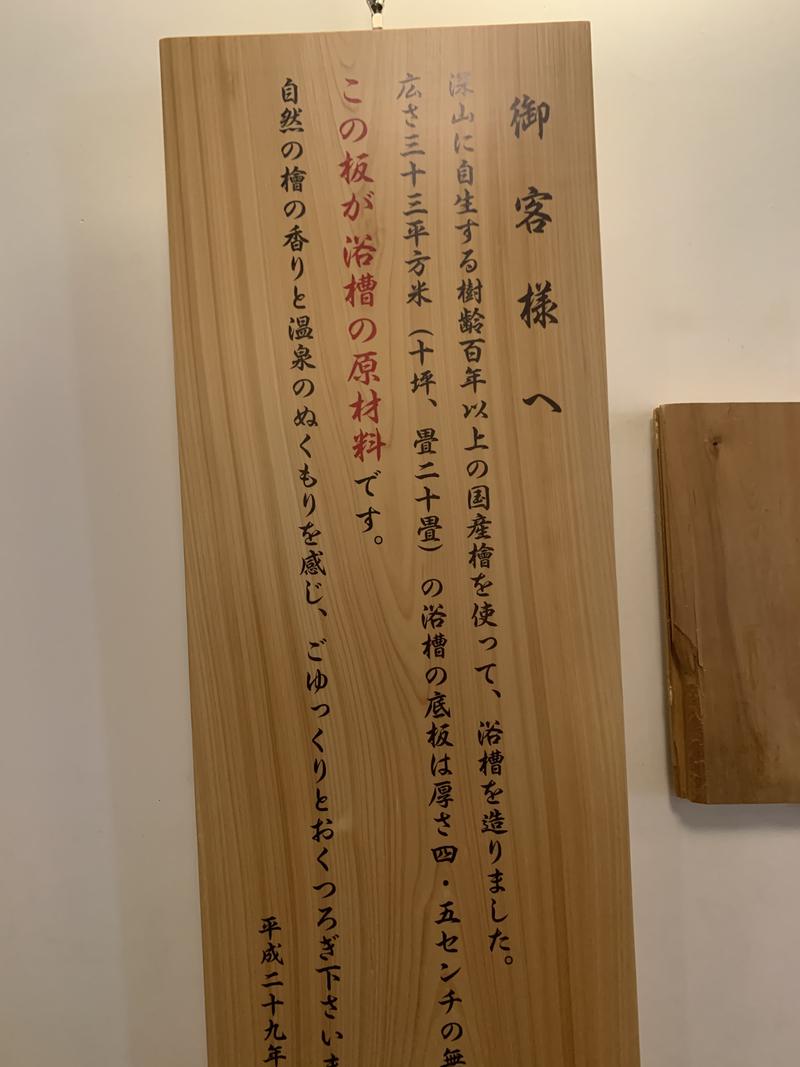 御客様へ
深山に自生する樹齢百年以上の国産檜を使って、浴槽を造りました。
広さ三十三平方米（十坪、畳二十畳）の浴槽の底板は厚さ四・五センチの無
この板が浴槽の原材料です。
自然の檜の香りと温泉のぬくもりを感じ、ごゆっくりとおくつろぎ下さいま
平成二十九年